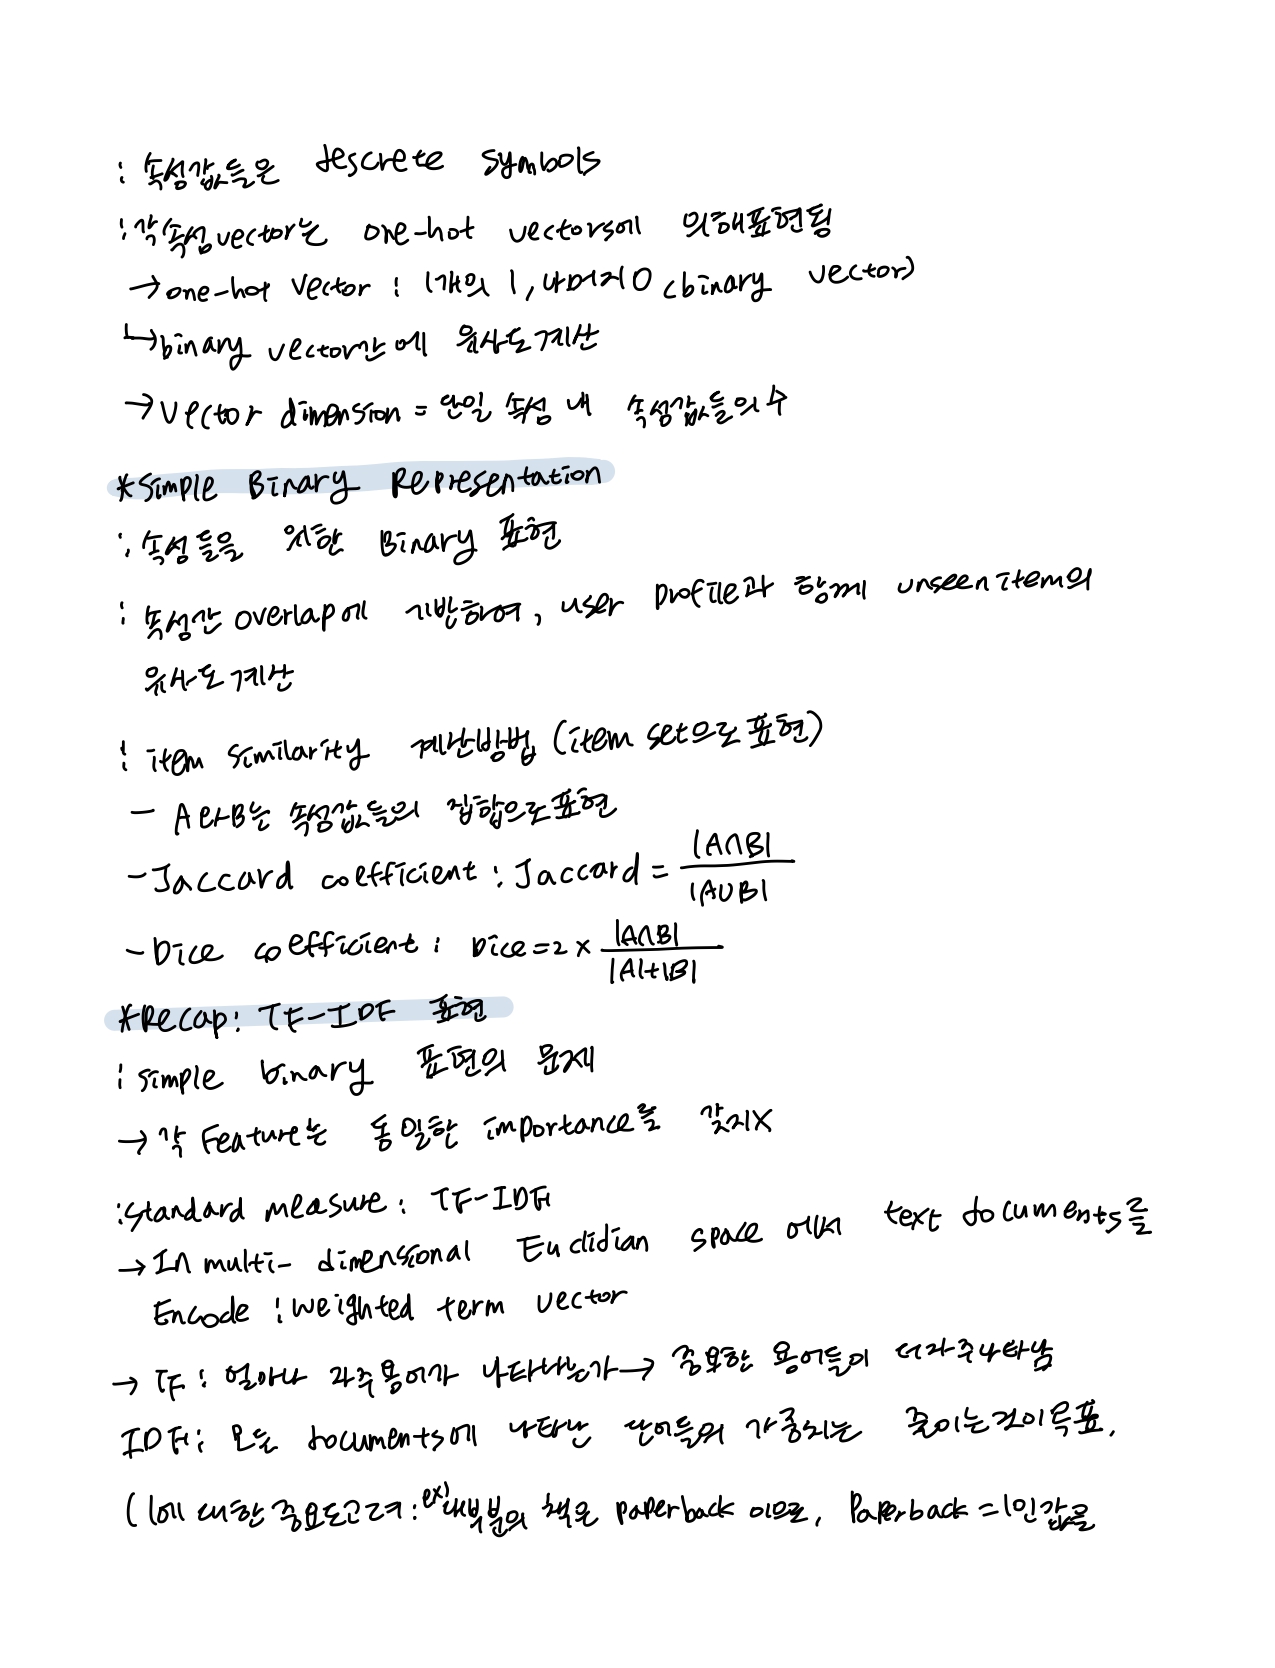 : 속성값들은 descrete symbols
: 각 속성 vector는 one-hot vectors에 의해 표현됨
→ one-hot vector : 1개의 1, 나머지 0 (binary vector)
↳ binary vector간에 유사도 계산
→ vector dimension = 단일 속성 내 속성값들의 수
*Simple Binary Representation
: 속성들을 위한 Binary 표현
: 속성간 overlap에 기반하여, user profile과 함께 unseen item의
유사도 계산
: item similarity 계산방법 (item set으로 표현)
- A와 B는 속성값들의 집합으로 표현
- Jaccard coefficient : Jaccard = |A∩B| / |A∪B|
- Dice coefficient : Dice = 2 × |A∩B| / |A|+|B|
*Recap: TF-IDF 표현
: simple binary 표현의 문제
→ 각 Feature는 동일한 importance를 갖지X
: standard measure : TF-IDF
→ In multi-dimensional Euclidian space 에서 text documents를
Encode : weighted term vector
→ TF : 얼마나 자주 용어가 나타나는가 → 중요한 용어들이 더 자주 나타남
IDF : 모든 documents에 나타난 단어들의 가중치는 줄이는 것이 목표.
(1에 대한 중요도 고려 : ex) 대부분의 책은 paperback 이므로, Paperback = 1인 값을